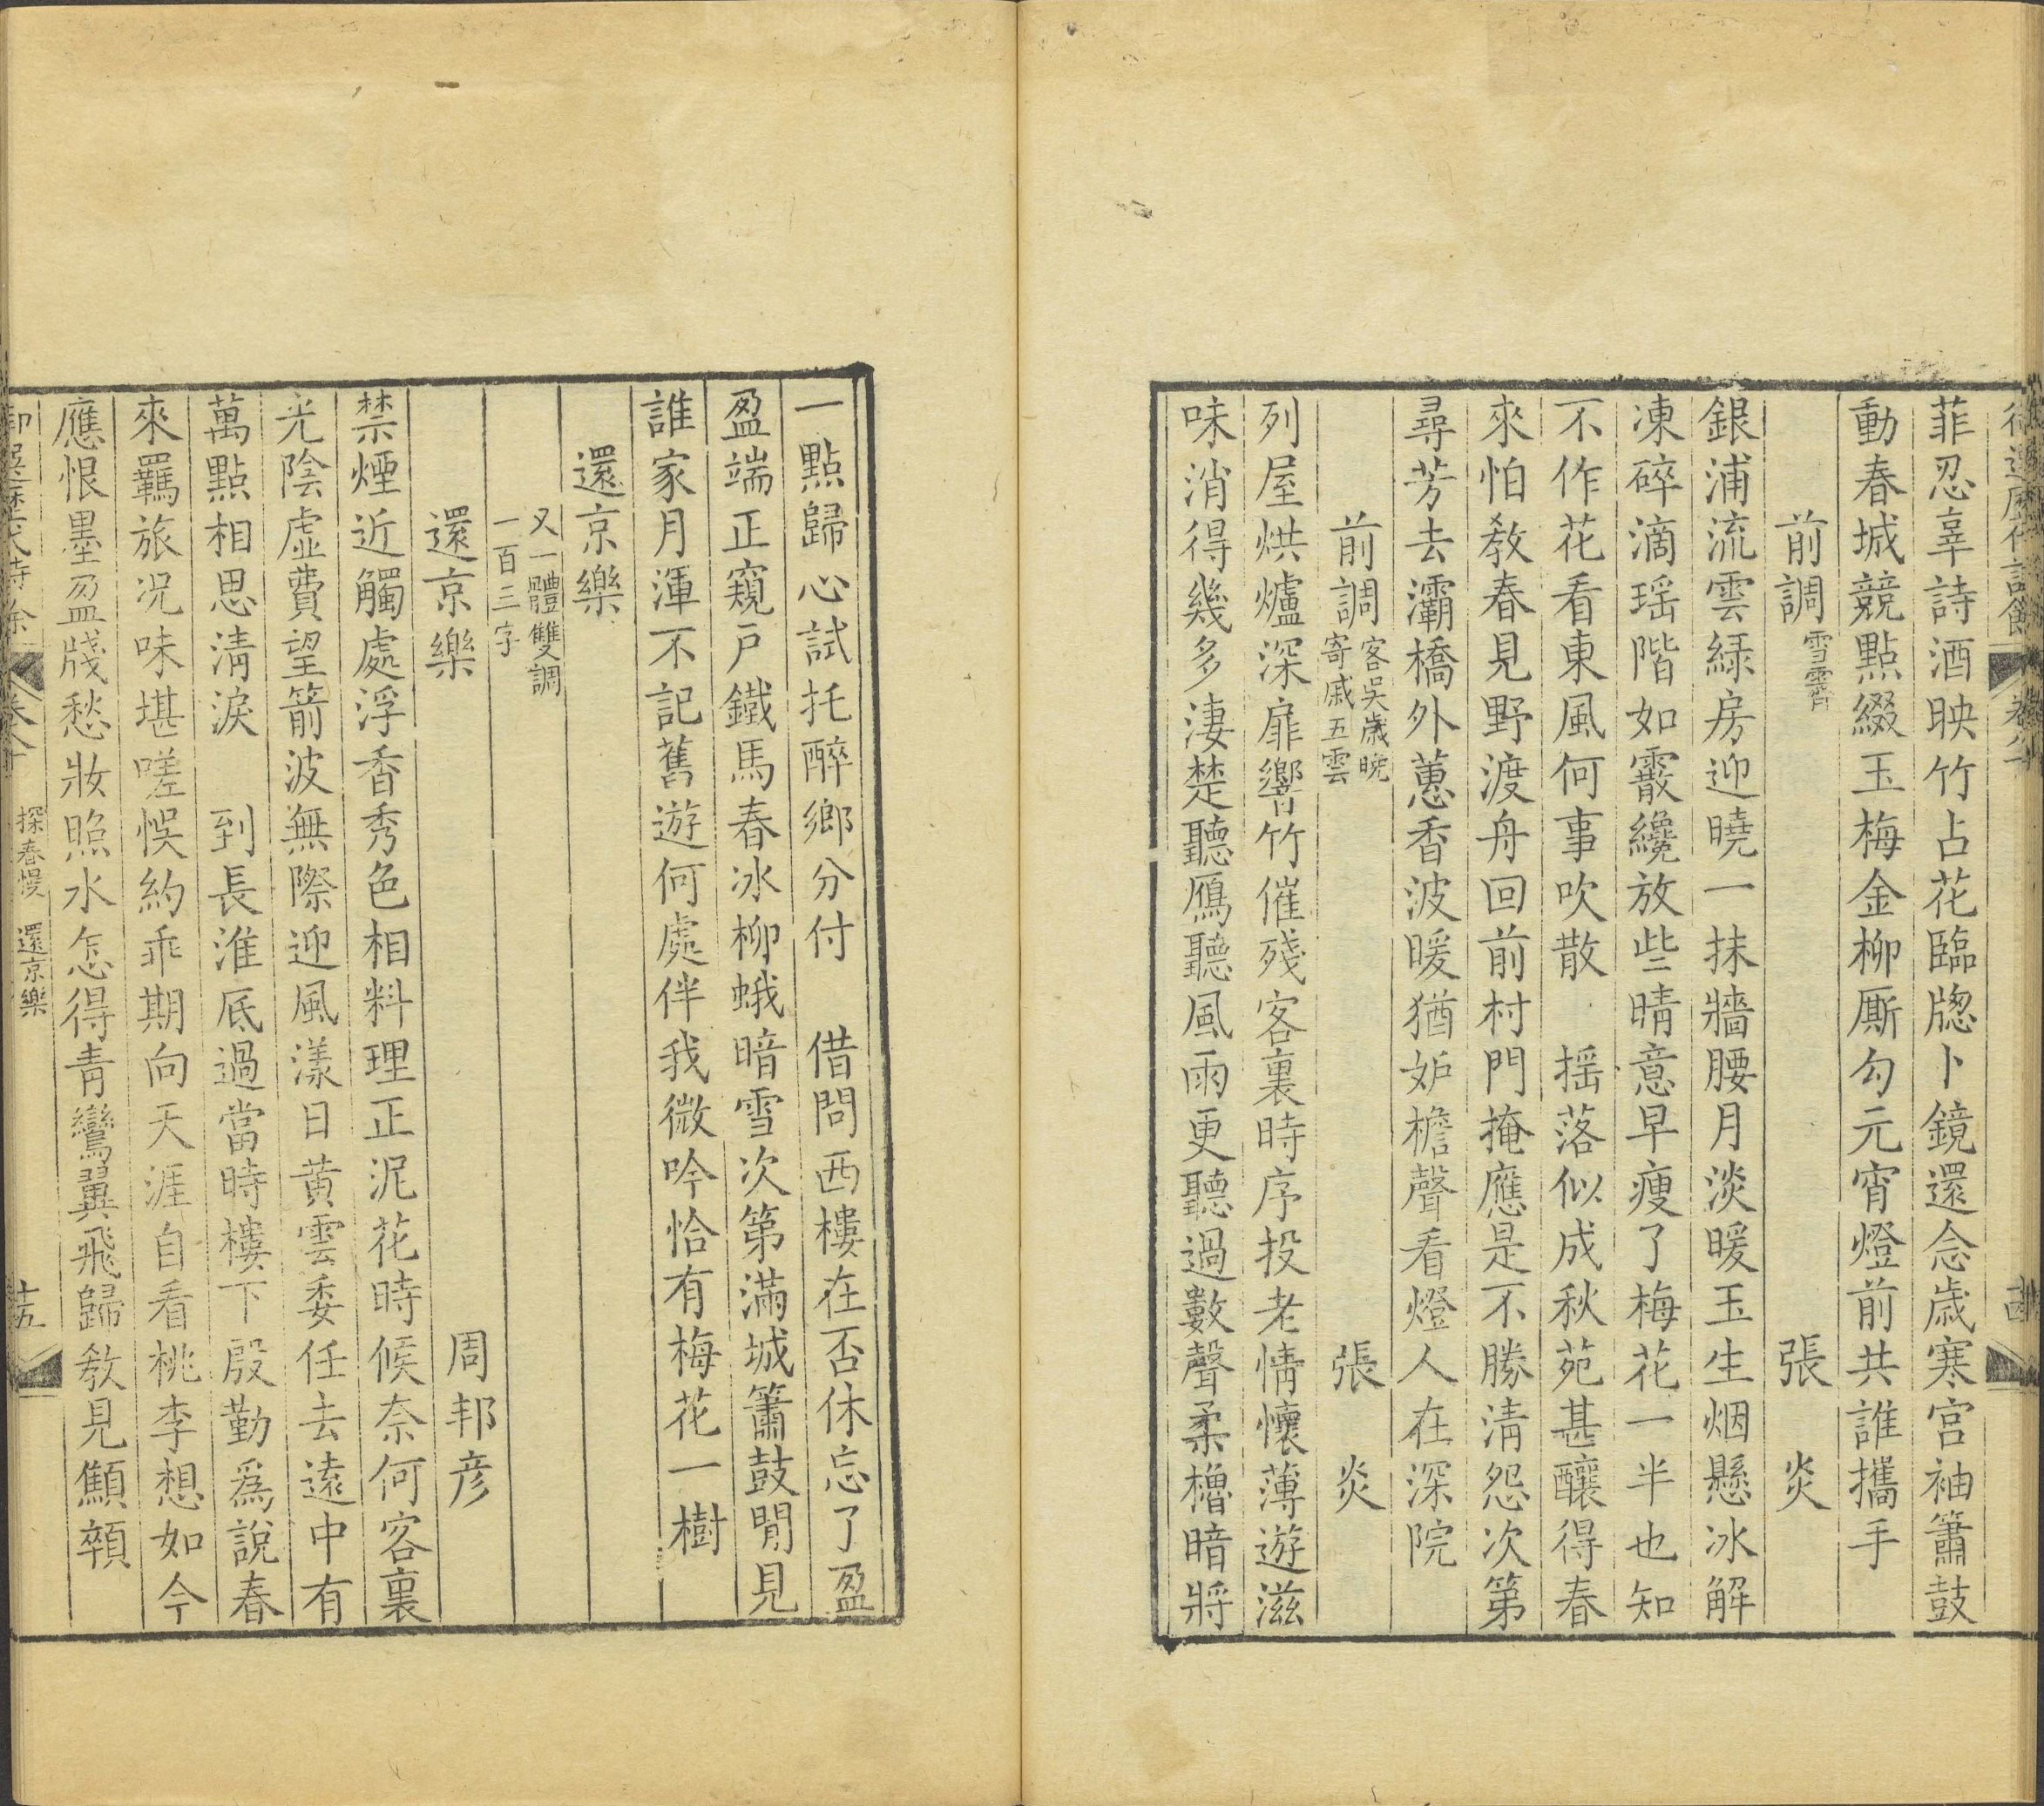 菲忍辜詩酒映竹占花臨牕卜鏡還念歲寒宫袖簫鼓
動春城競點綴玉梅金柳厮勾元宵燈前共誰攜手
前調雪霽　張炎
銀浦流雲緑房迎曉一抹牆腰月淡暖玉生烟懸冰解
凍碎滴瑶階如霰纔放些晴意早瘦了梅花一半也知
不作花看東風何事吹散　揺落似成秋苑甚釀得春
來怕教春見野渡舟回前村門掩應是不勝清怨次第
尋芳去灞橋外蕙香波暖猶妒檐聲看燈人在深院
前調客吳歲晚寄戚五雲　張炎
列屋烘爐深扉響竹催殘客裏時序投老情懷薄遊滋
味消得幾多淒楚聽鴈聽風雨更聽過數聲柔櫓暗將
一點歸心試托醉鄉分付　借問西樓在否休忘了盈
盈端正窺戶鐵馬春冰柳蛾暗雪次第滿城簫鼓閒見
誰家月渾不記舊遊何處伴我微吟恰有梅花一樹
還京樂
又一體雙調
一百三字
還京樂　周邦彦
禁煙近觸處浮香秀色相料理正泥花時候奈何客裏
光陰虛費望箭波無際迎風漾日黄雲委任去遠中有
萬點相思清淚　到長淮底過當時樓下殷勤爲說春
來羈旅况味堪嗟悞約乖期向天涯自看桃李想如今
應恨墨盈牋愁妝照水怎得青鸞翼飛歸教見顦顇
探春慢　還京樂
十五